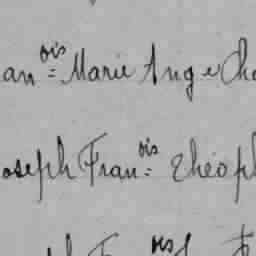 an:ois Marie Ange Cha
oseph Fran:ois Théoph